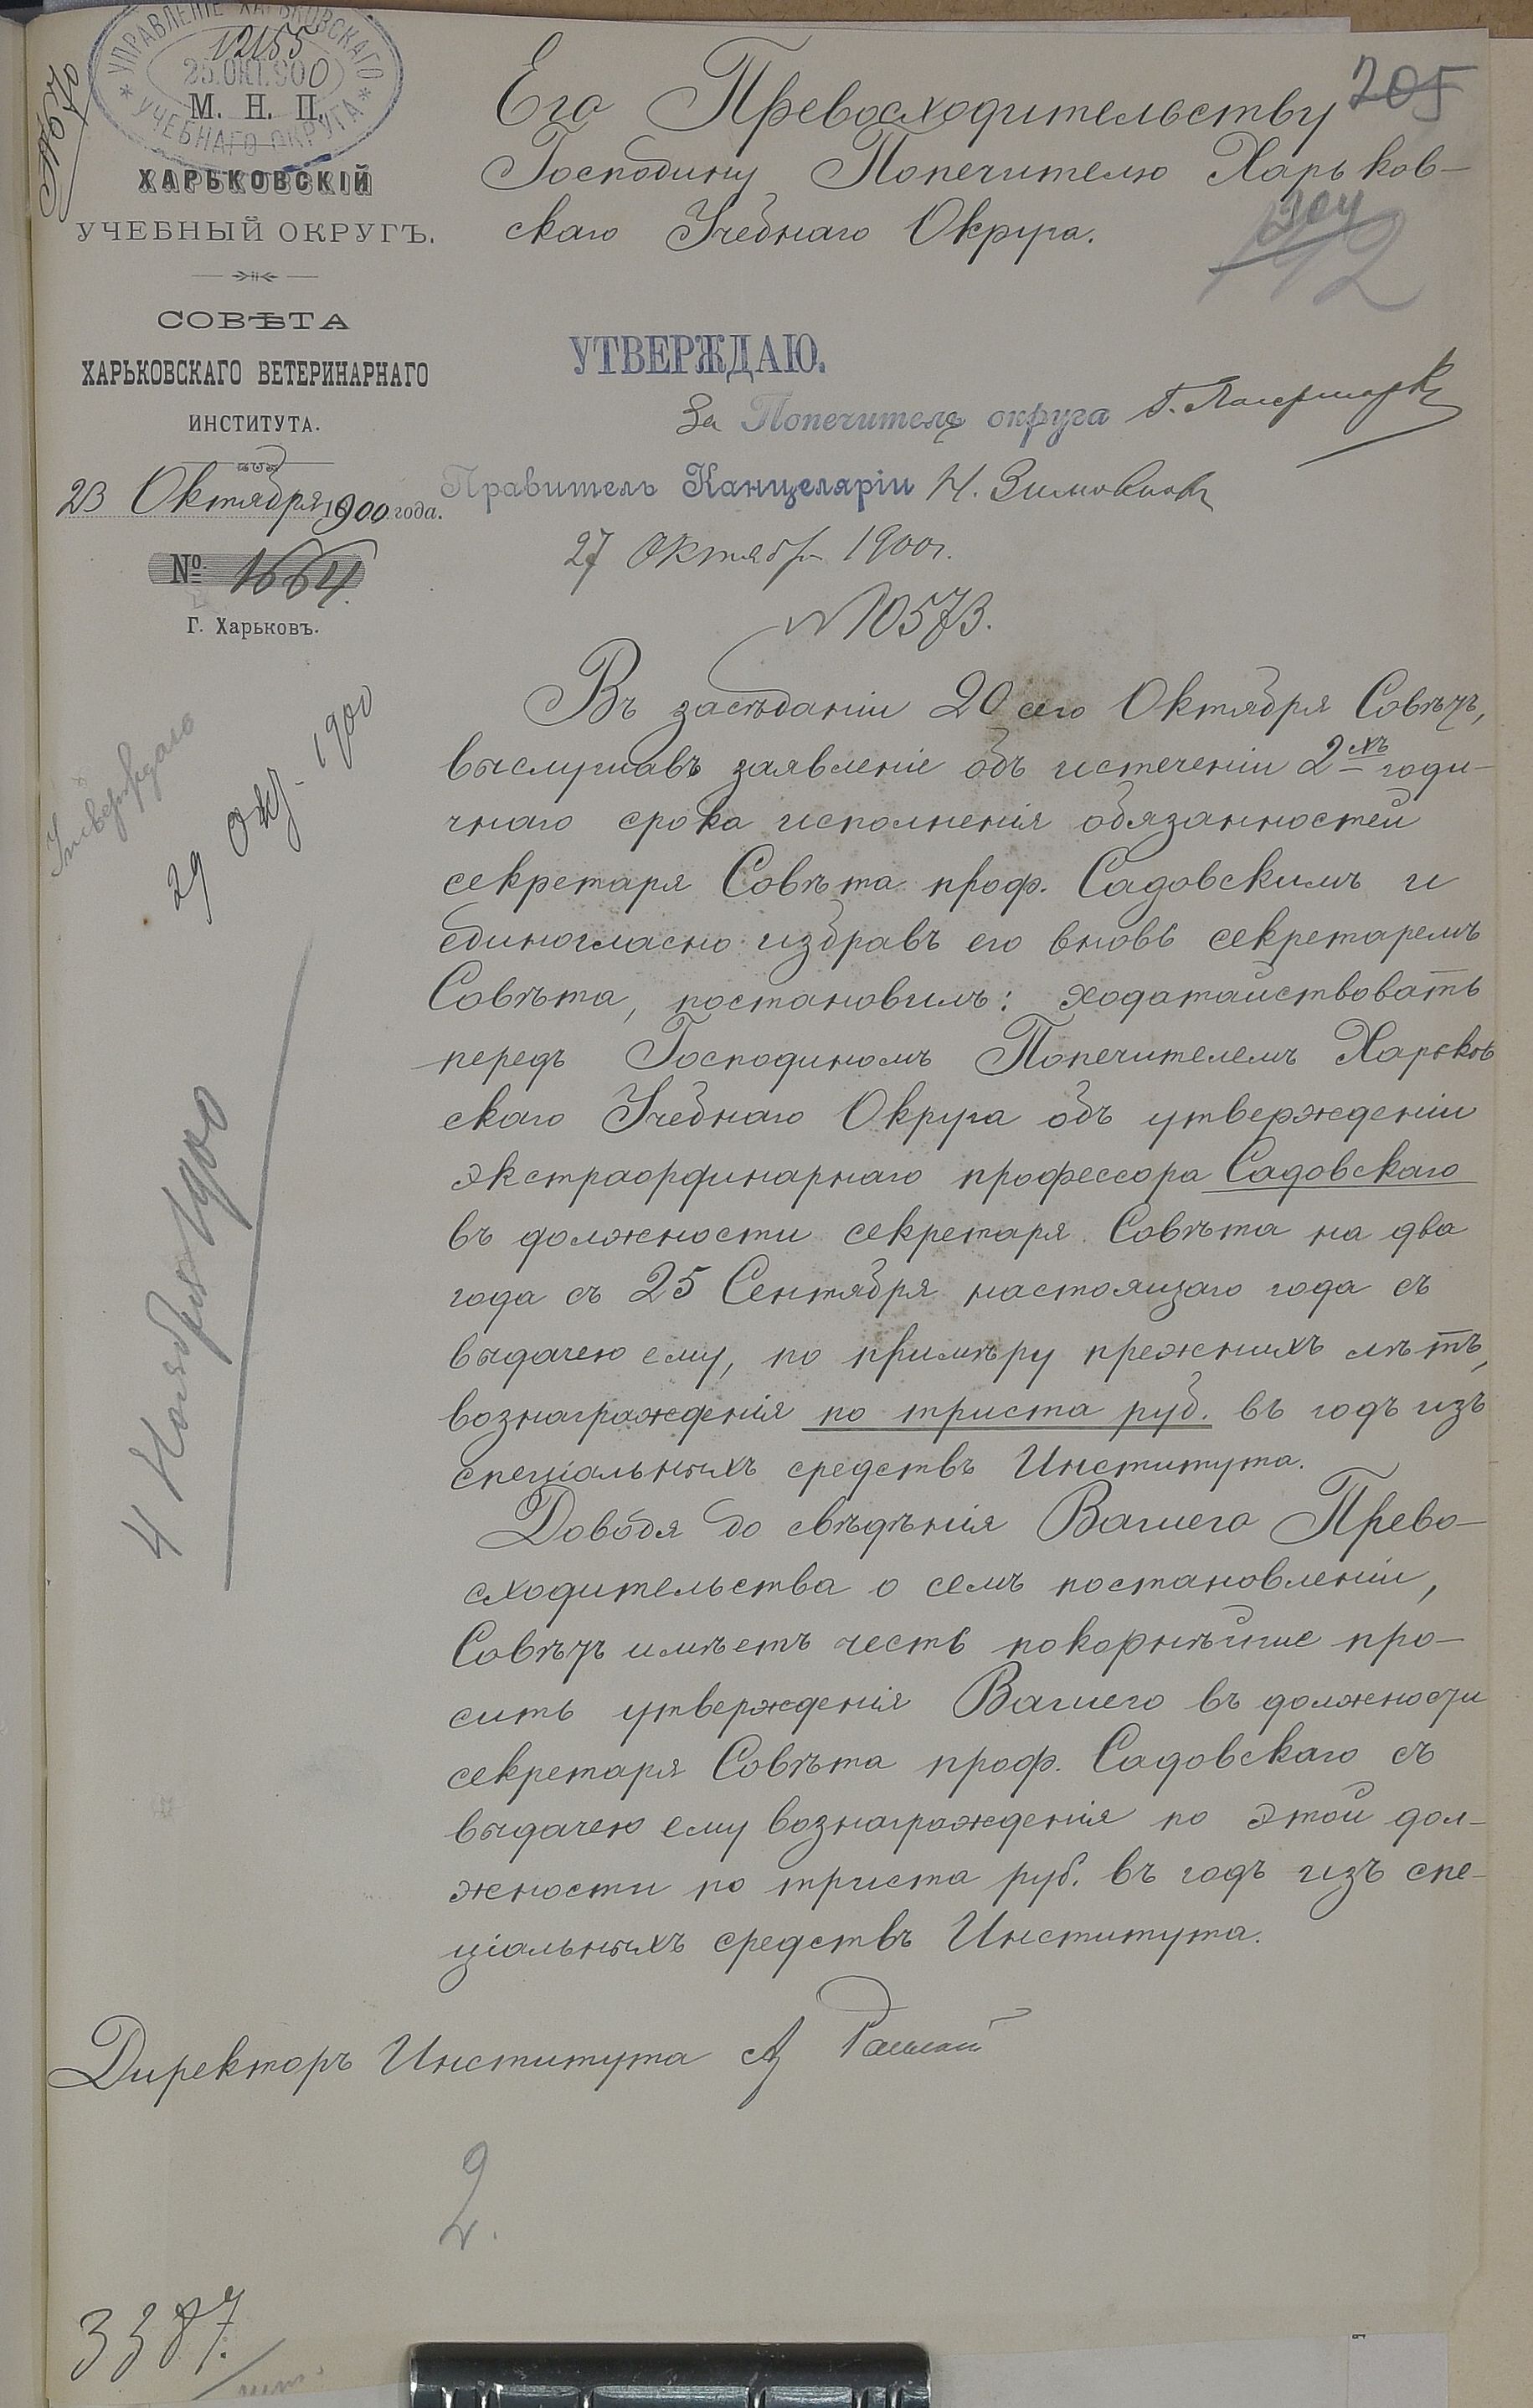 УПРАВЛЕНІЕ ХАРЬКОВСКАГО
12155
25.ОКТ.900
М. Н. П.
УЧЕБНАГО ОКРУГА
ХАРЬКОВСКІЙ
УЧЕБНЫЙ ОКРУГЪ.
СОВѢТА
ХАРЬКОВСКАГО ВЕТЕРИНАРНАГО
ИНСТИТУТА.
23 Октября 1900 года.
№ 1664.
Г. Харьковъ.
29 окт. 1900
4 Ноября 1900
205
Его Превосходительству
Господину Попечителю Харьков-
скаго Учебнаго Округа.
204
192
УТВЕРЖДАЮ.
За Попечителя округа
Правитель Канцеляріи Н.
27 Октября 1900г.
№ 10573.
Въ засѣданіи 20 сего Октября Совѣтъ,
выслушавъ заявленіе объ истеченіи 2хъ годи-
чнаго срока исполненія обязанностей
секретаря Совѣта проф. Садовскимъ и
единогласно избравъ его вновь секретаремъ
Совѣта, постановилъ: ходатайствовать
передъ Господиномъ Попечителемъ Харьков
скаго Учебнаго Округа объ утвержденіи
экстраординарнаго профессора Садовскаго
въ должности секретаря Совѣта на два
года съ 25 Сентября настоящаго года съ
выдачею ему, по примѣру прежнихъ лѣтъ,
вознагражденія по триста руб. въ годъ изъ
спеціальныхъ средствъ Института.
Доводя до свѣдѣнія Вашего Прево-
сходительства о семъ постановленіи,
Совѣтъ имѣетъ честь покорнѣйше про-
сить утвержденія Вашего въ должности
секретаря Совѣта проф. Садовскаго съ
выдачею ему вознагражденія по этой дол-
жности по триста руб. въ годъ изъ спе-
ціальныхъ средствъ Института.
Директоръ Института А Раевскій
2.
3387.